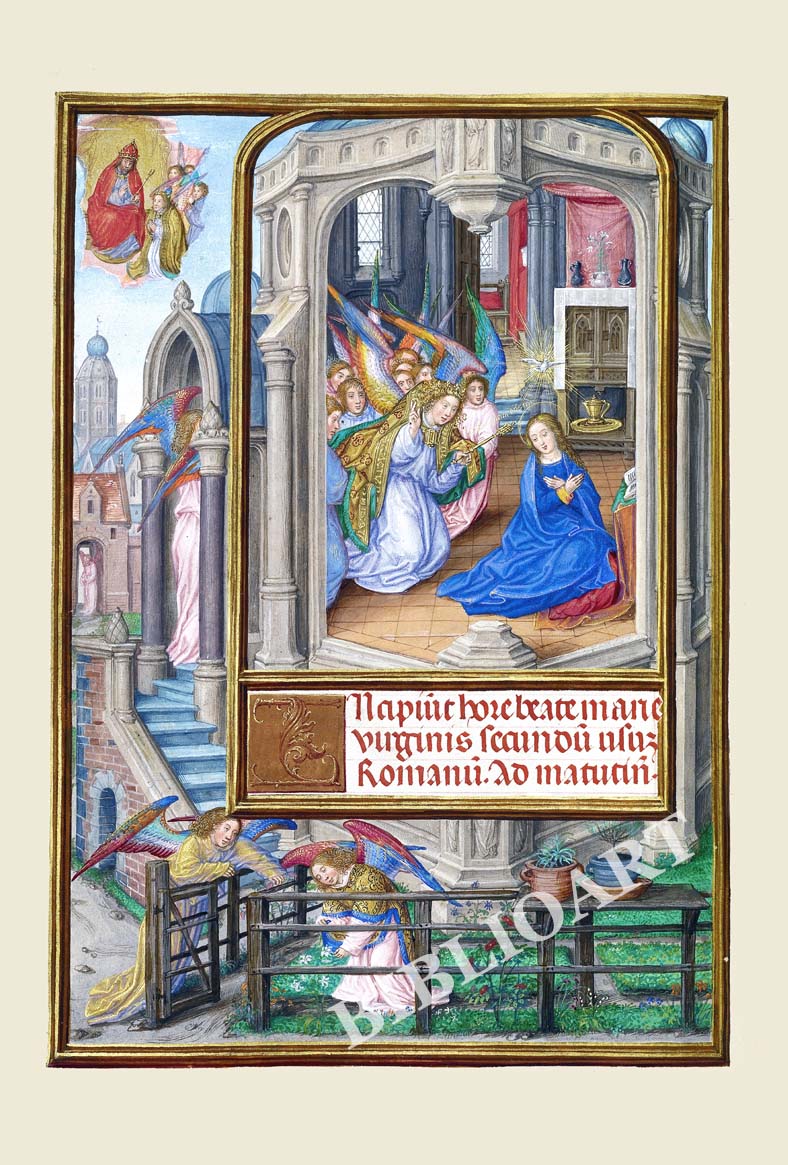 INcipiūt hore beate marie
virginis secundū usuʒ
Romanū. Ad matutin̄.
BIBLIOART